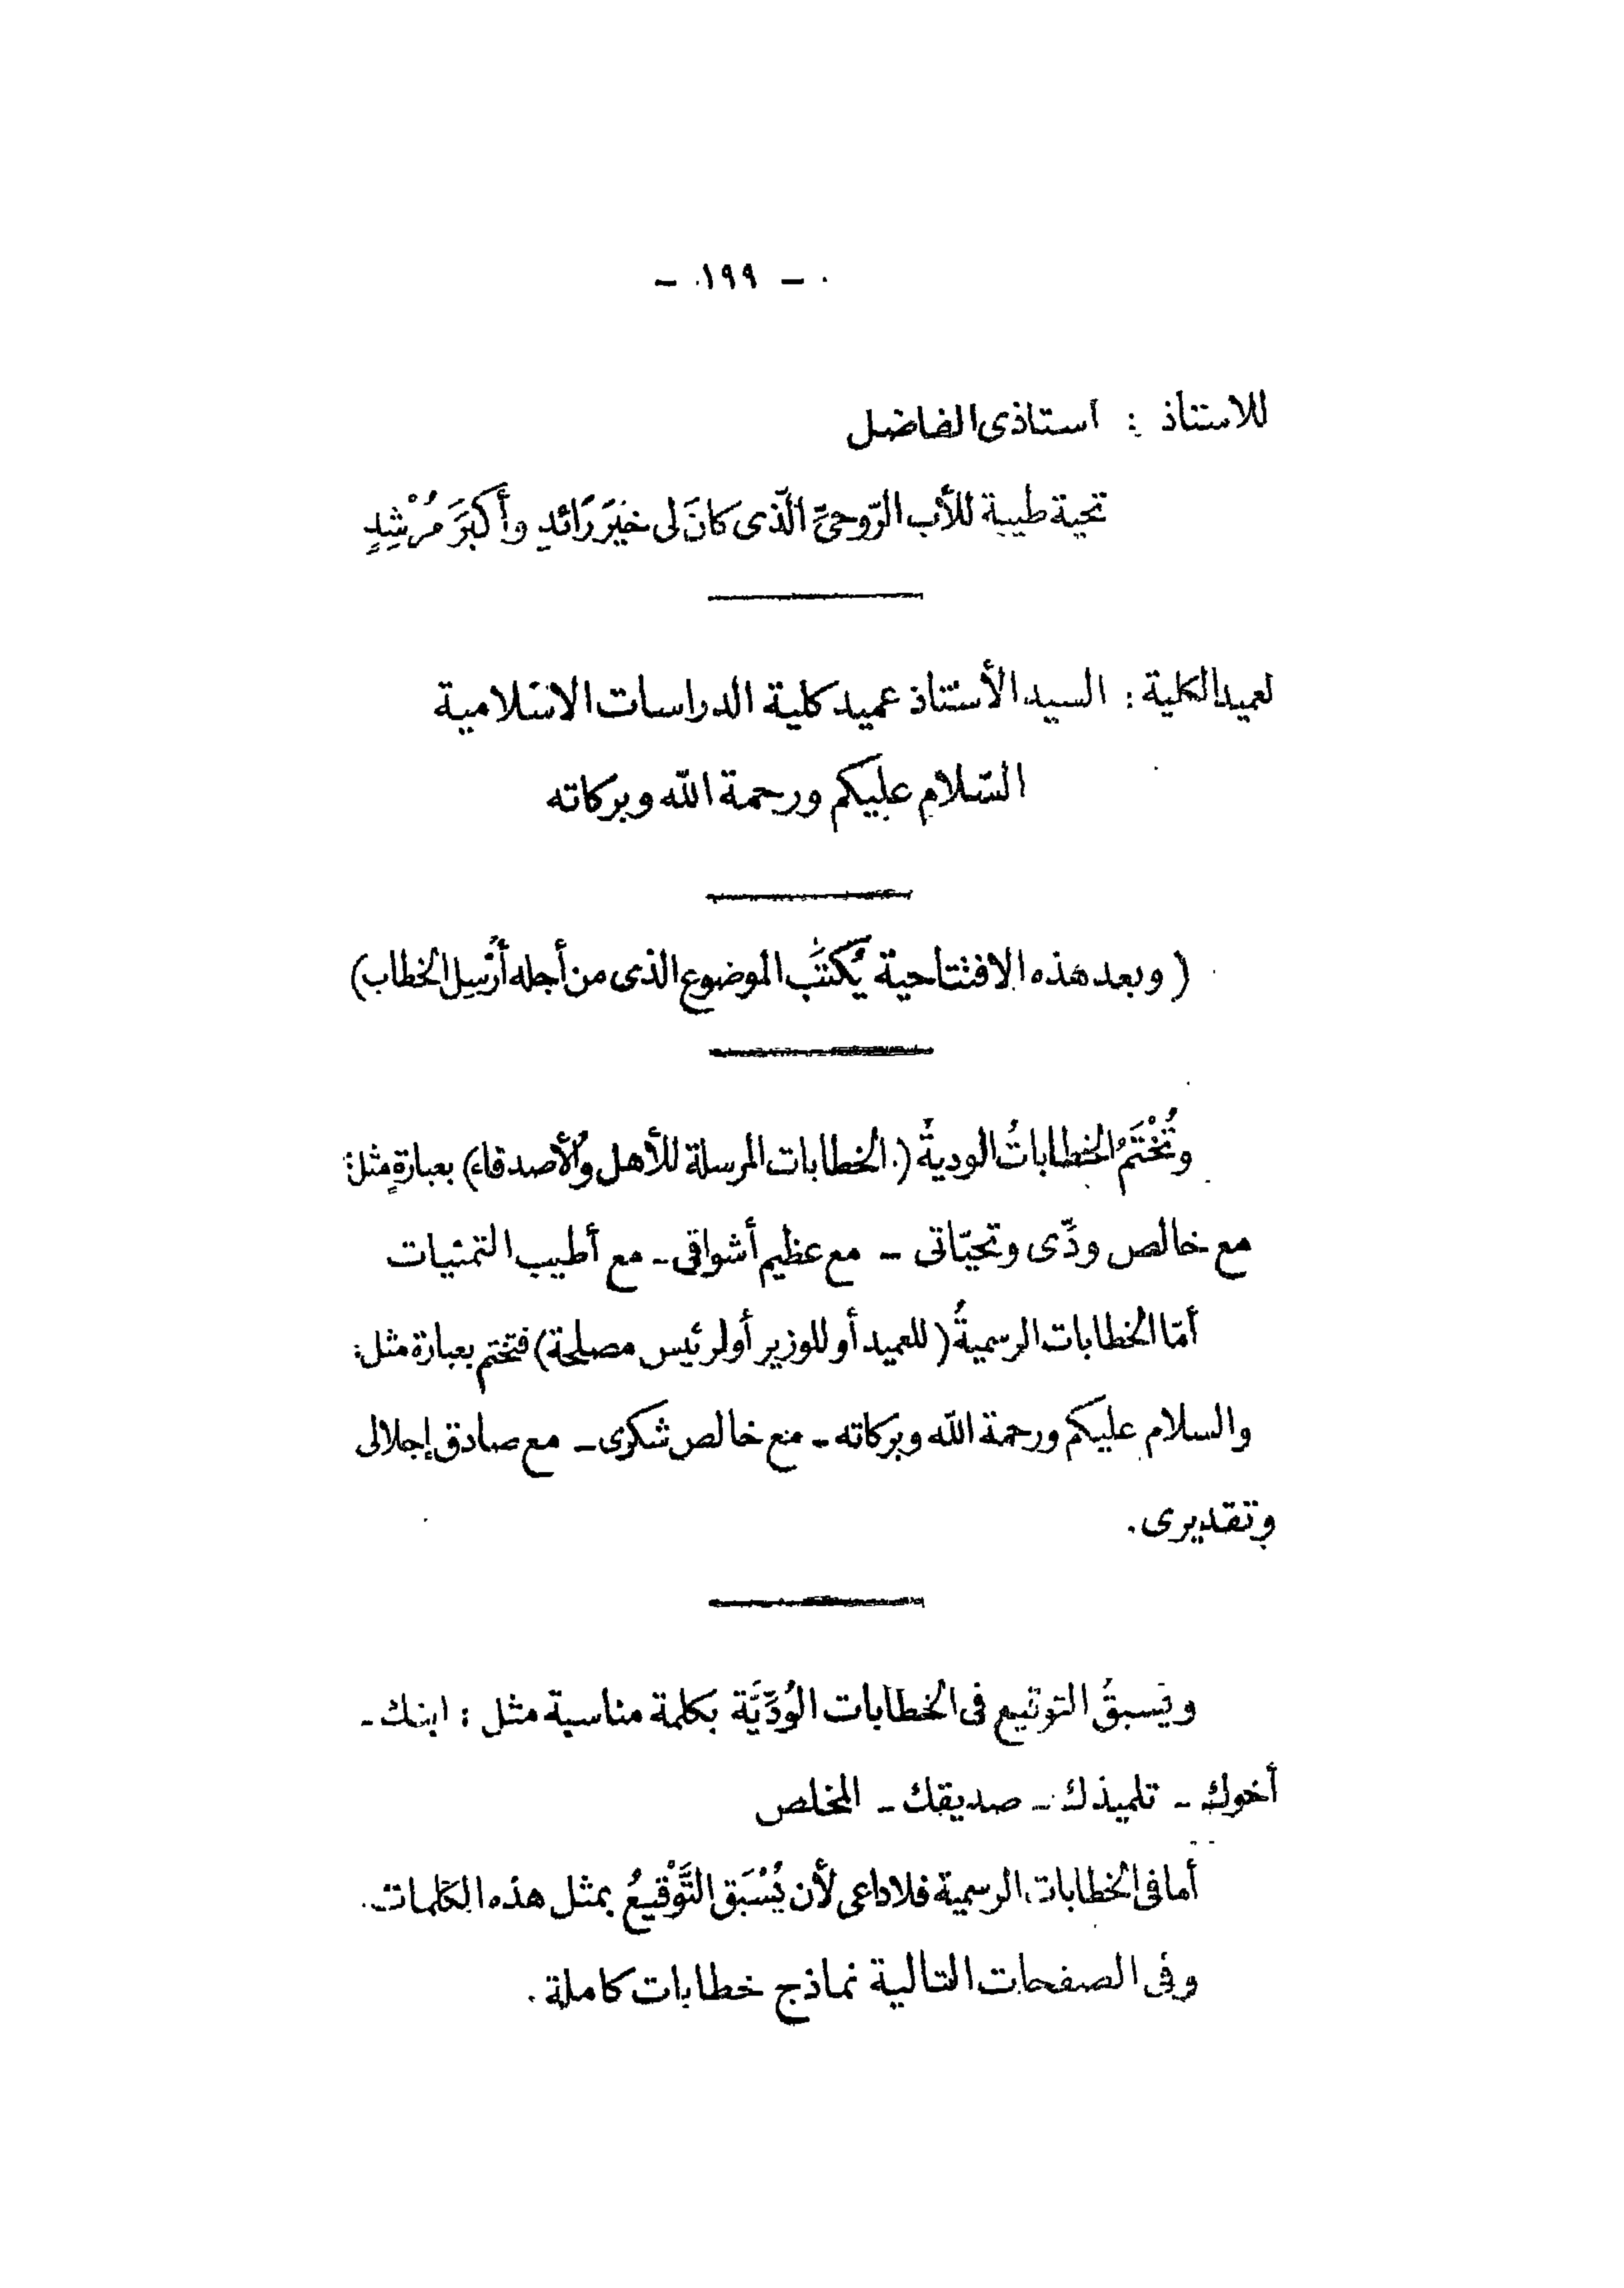 - ١٩٩ -
للاستاذ : استاذى الفاضل
تحية طيبة للأب الرّوحىِّ الّذى كانَ لى خيَرَ رَائدٍ وأَكبَرَ مُرْشِدٍ
لعميد الكلية : السيد الأستاذ عميد كلية الدراسات الاسلامية
السّلام عليكم ورحمة اللّه وبركاته
( وبعد هذه الافتتاحية يُكتَب الموضوع الذى من أجله أُرْسِل الخطاب )
وتُخْتَمُ الخطاباتُ الوديةُ ( الخطابات المرسلة للأهل والأصدقاء ) بعبارةٍ مثل :
مع خالص ودِّى وتحيّاتى - مع عظيم أشواقى - مع أطيب التمنيات
أمّا الخطابات الرسميةُ ( للعميد أو للوزير أو لرئيس مصلحة ) فتختم بعبارة مثل :
والسلام عليكم ورحمة اللّه وبركاته - مع خالص شكرى - مع صادق إجلالى
وتقديرى .
ويسبقُ التوقيع فى الخطابات الوُدِّيَّة بكلمة مناسبة مثل : ابنك -
أخوك - تلميذك - صديقك - المخلص
أما فى الخطابات الرسمية فلا داعى لأن يُسْبَق التَّوْقيعُ بمثل هذه الكلمات .
وفى الصفحات التالية نماذج خطابات كاملة .